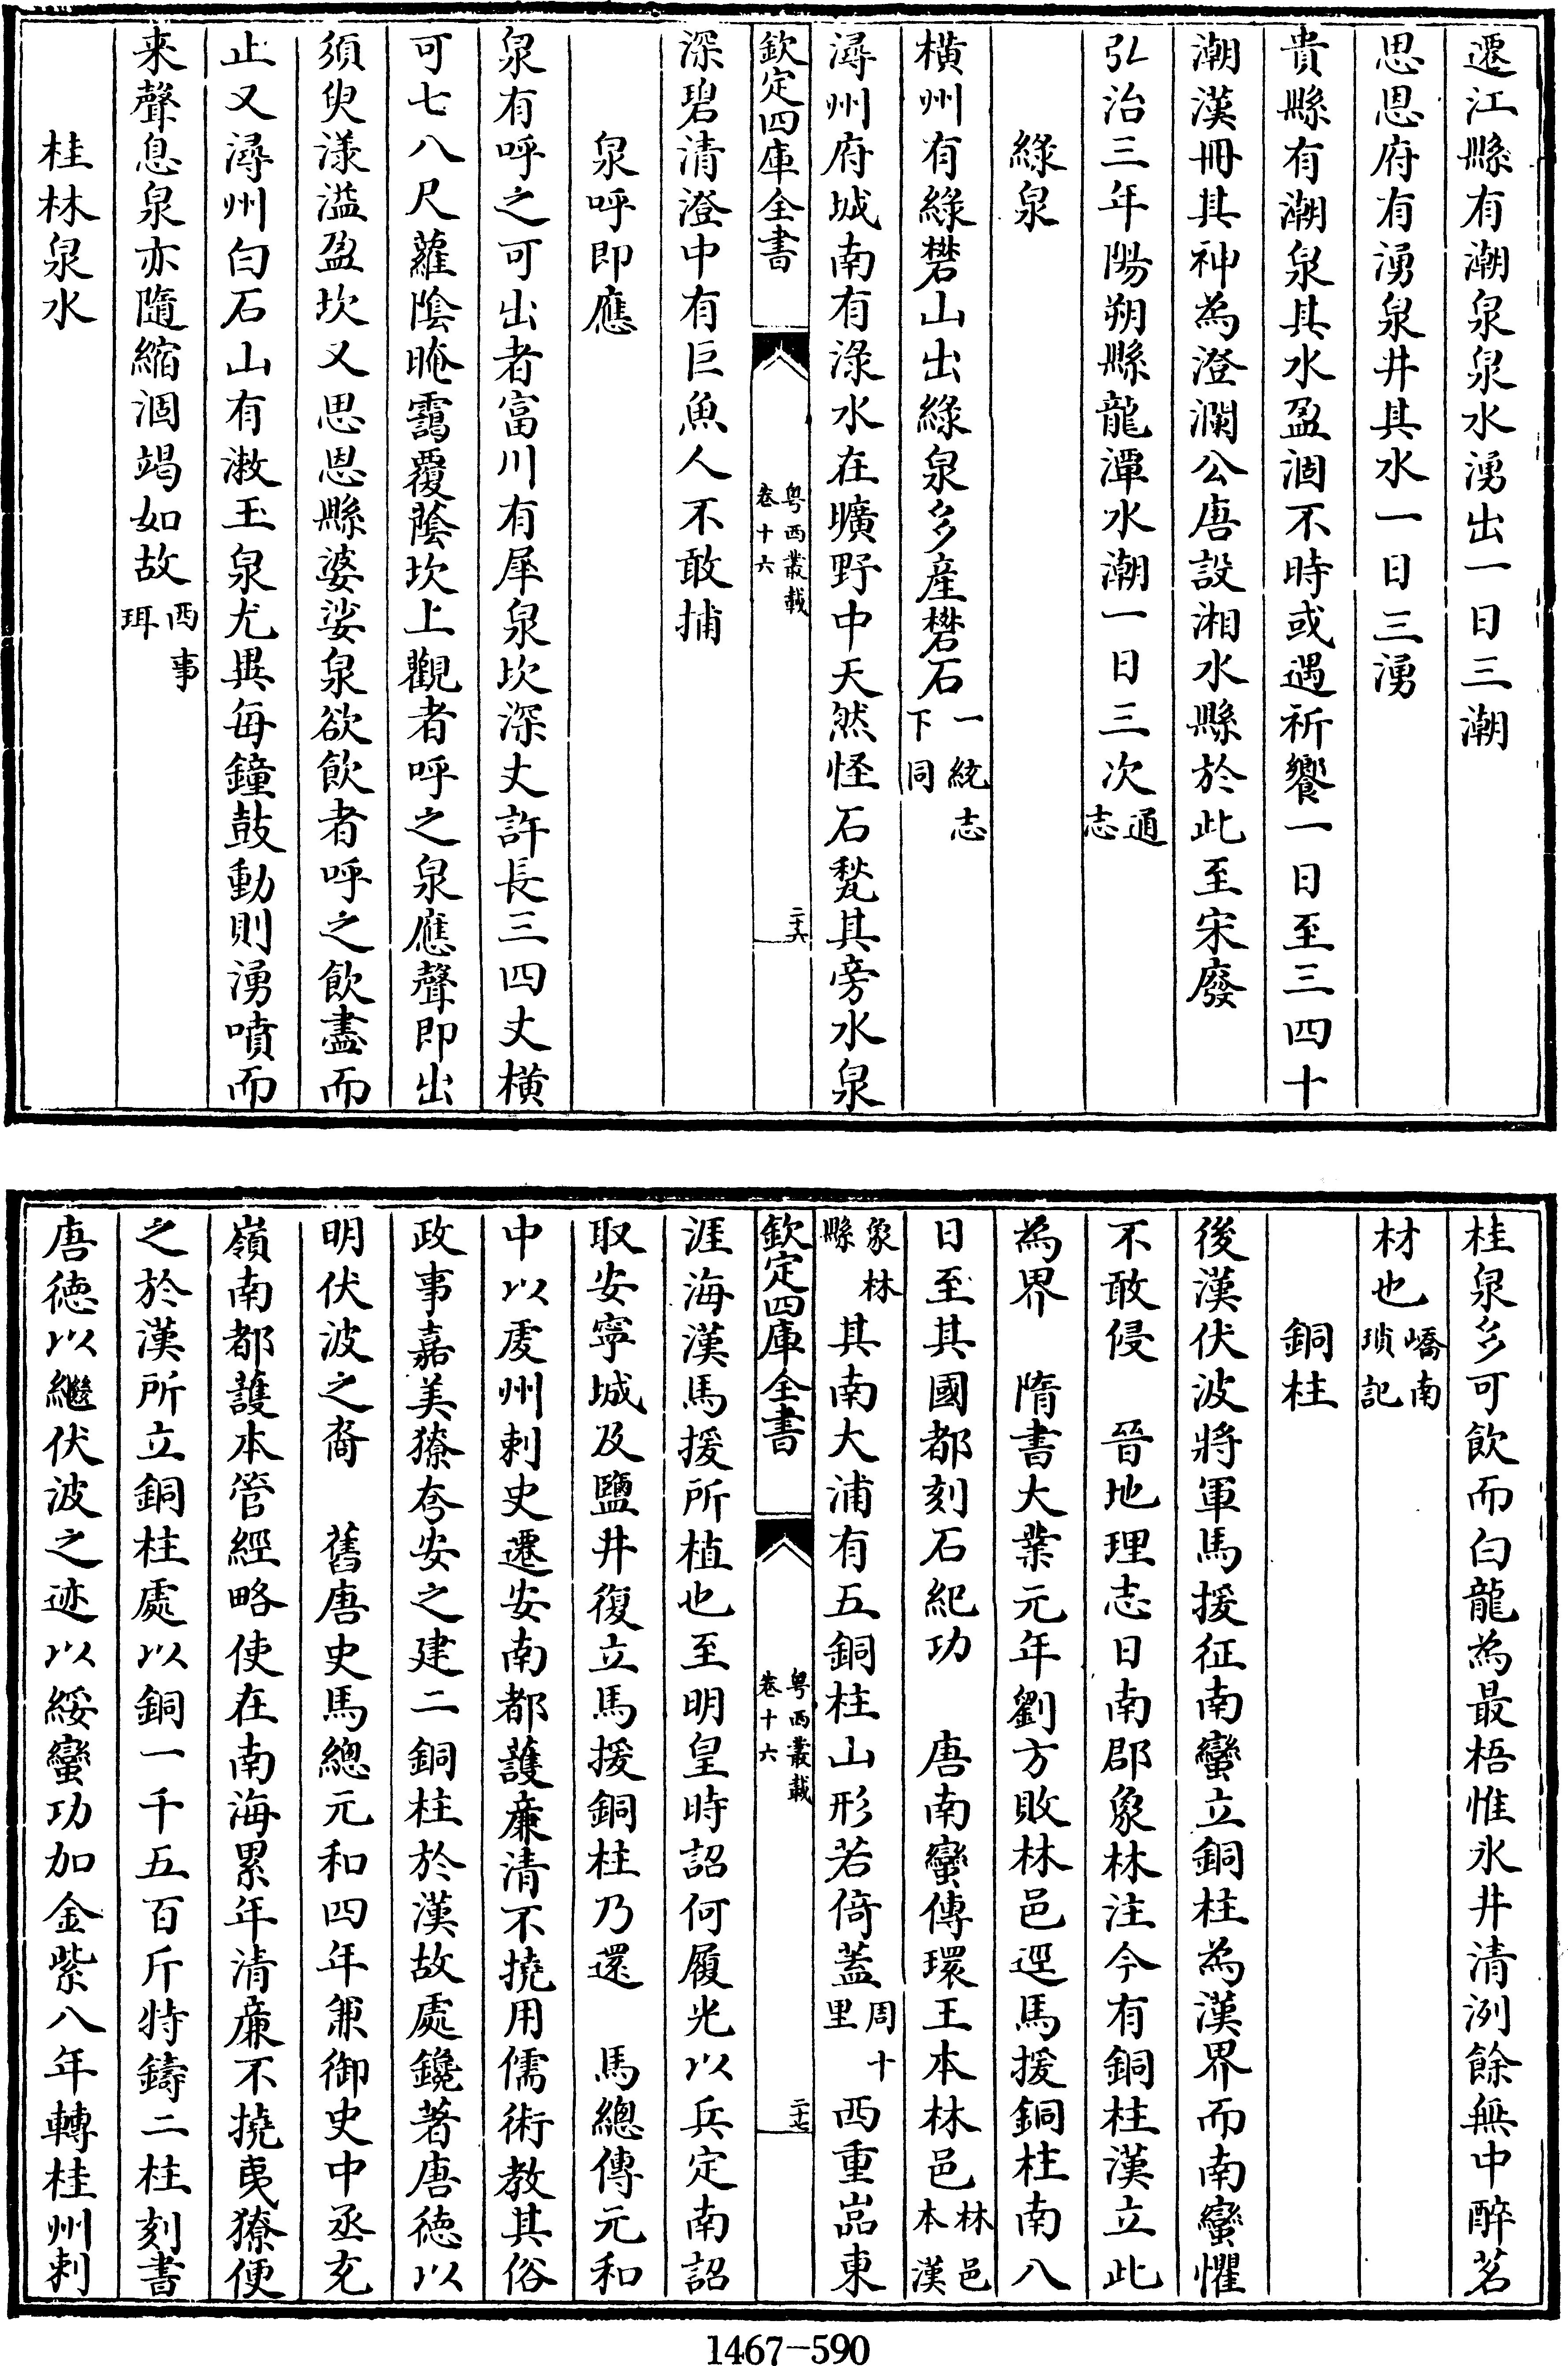 遷江縣有潮泉泉水湧出一日三潮
思恩府有湧泉井其水一日三湧
貴縣有潮泉其水盈涸不時或遇祈饗一日至三四十
潮漢冊其神為澄瀾公唐設湘水縣於此至宋廢
弘治三年陽朔縣龍潭水潮一日三次通志
綠泉
橫州有綠礬山出綠泉多產礬石一統志下同
潯州府城南有淥水在曠野中天然怪石甃其旁水泉
欽定四庫全書
粤西叢載
卷十六
二十六
深碧清澄中有巨魚人不敢捕
泉呼即應
泉有呼之可出者富川有犀泉坎深丈許長三四丈橫
可七八尺蘿陰晻靄覆蔭坎上觀者呼之泉應聲即出
須臾漾溢盈坎又思恩縣婆娑泉欲飲者呼之飲盡而
止又潯州白石山有漱玉泉尤異每鐘鼓動則湧噴而
来聲息泉亦隨縮涸竭如故西事珥
桂林泉水
桂泉多可飲而白龍為最梧惟氷井清洌餘無中醉茗
材也嶠南瑣記
銅柱
後漢伏波將軍馬援征南蠻立銅柱為漢界而南蠻懼
不敢侵　晉地理志日南郡象林注今有銅柱漢立此
為界　隋書大業元年劉方敗林邑逕馬援銅柱南八
日至其國都刻石紀功　唐南蠻傳環王本林邑林邑本漢
象林縣其南大浦有五銅柱山形若倚蓋周十里西重嵓東
欽定四庫全書
粤西叢載
卷十六
二十七
涯海漢馬援所植也至明皇時詔何履光以兵定南詔
取安寧城及鹽井復立馬援銅柱乃還　馬總傳元和
中以䖍州刺史遷安南都護廉清不撓用儒術教其俗
政事嘉美獠夸安之建二銅柱於漢故處鑱著唐德以
明伏波之裔　舊唐史馬總元和四年兼御史中丞充
嶺南都護本管經略使在南海累年清廉不撓夷獠便
之於漢所立銅柱處以銅一千五百斤特鑄二柱刻書
唐德以繼伏波之迹以綏蠻功加金紫八年轉桂州刺
1467-590